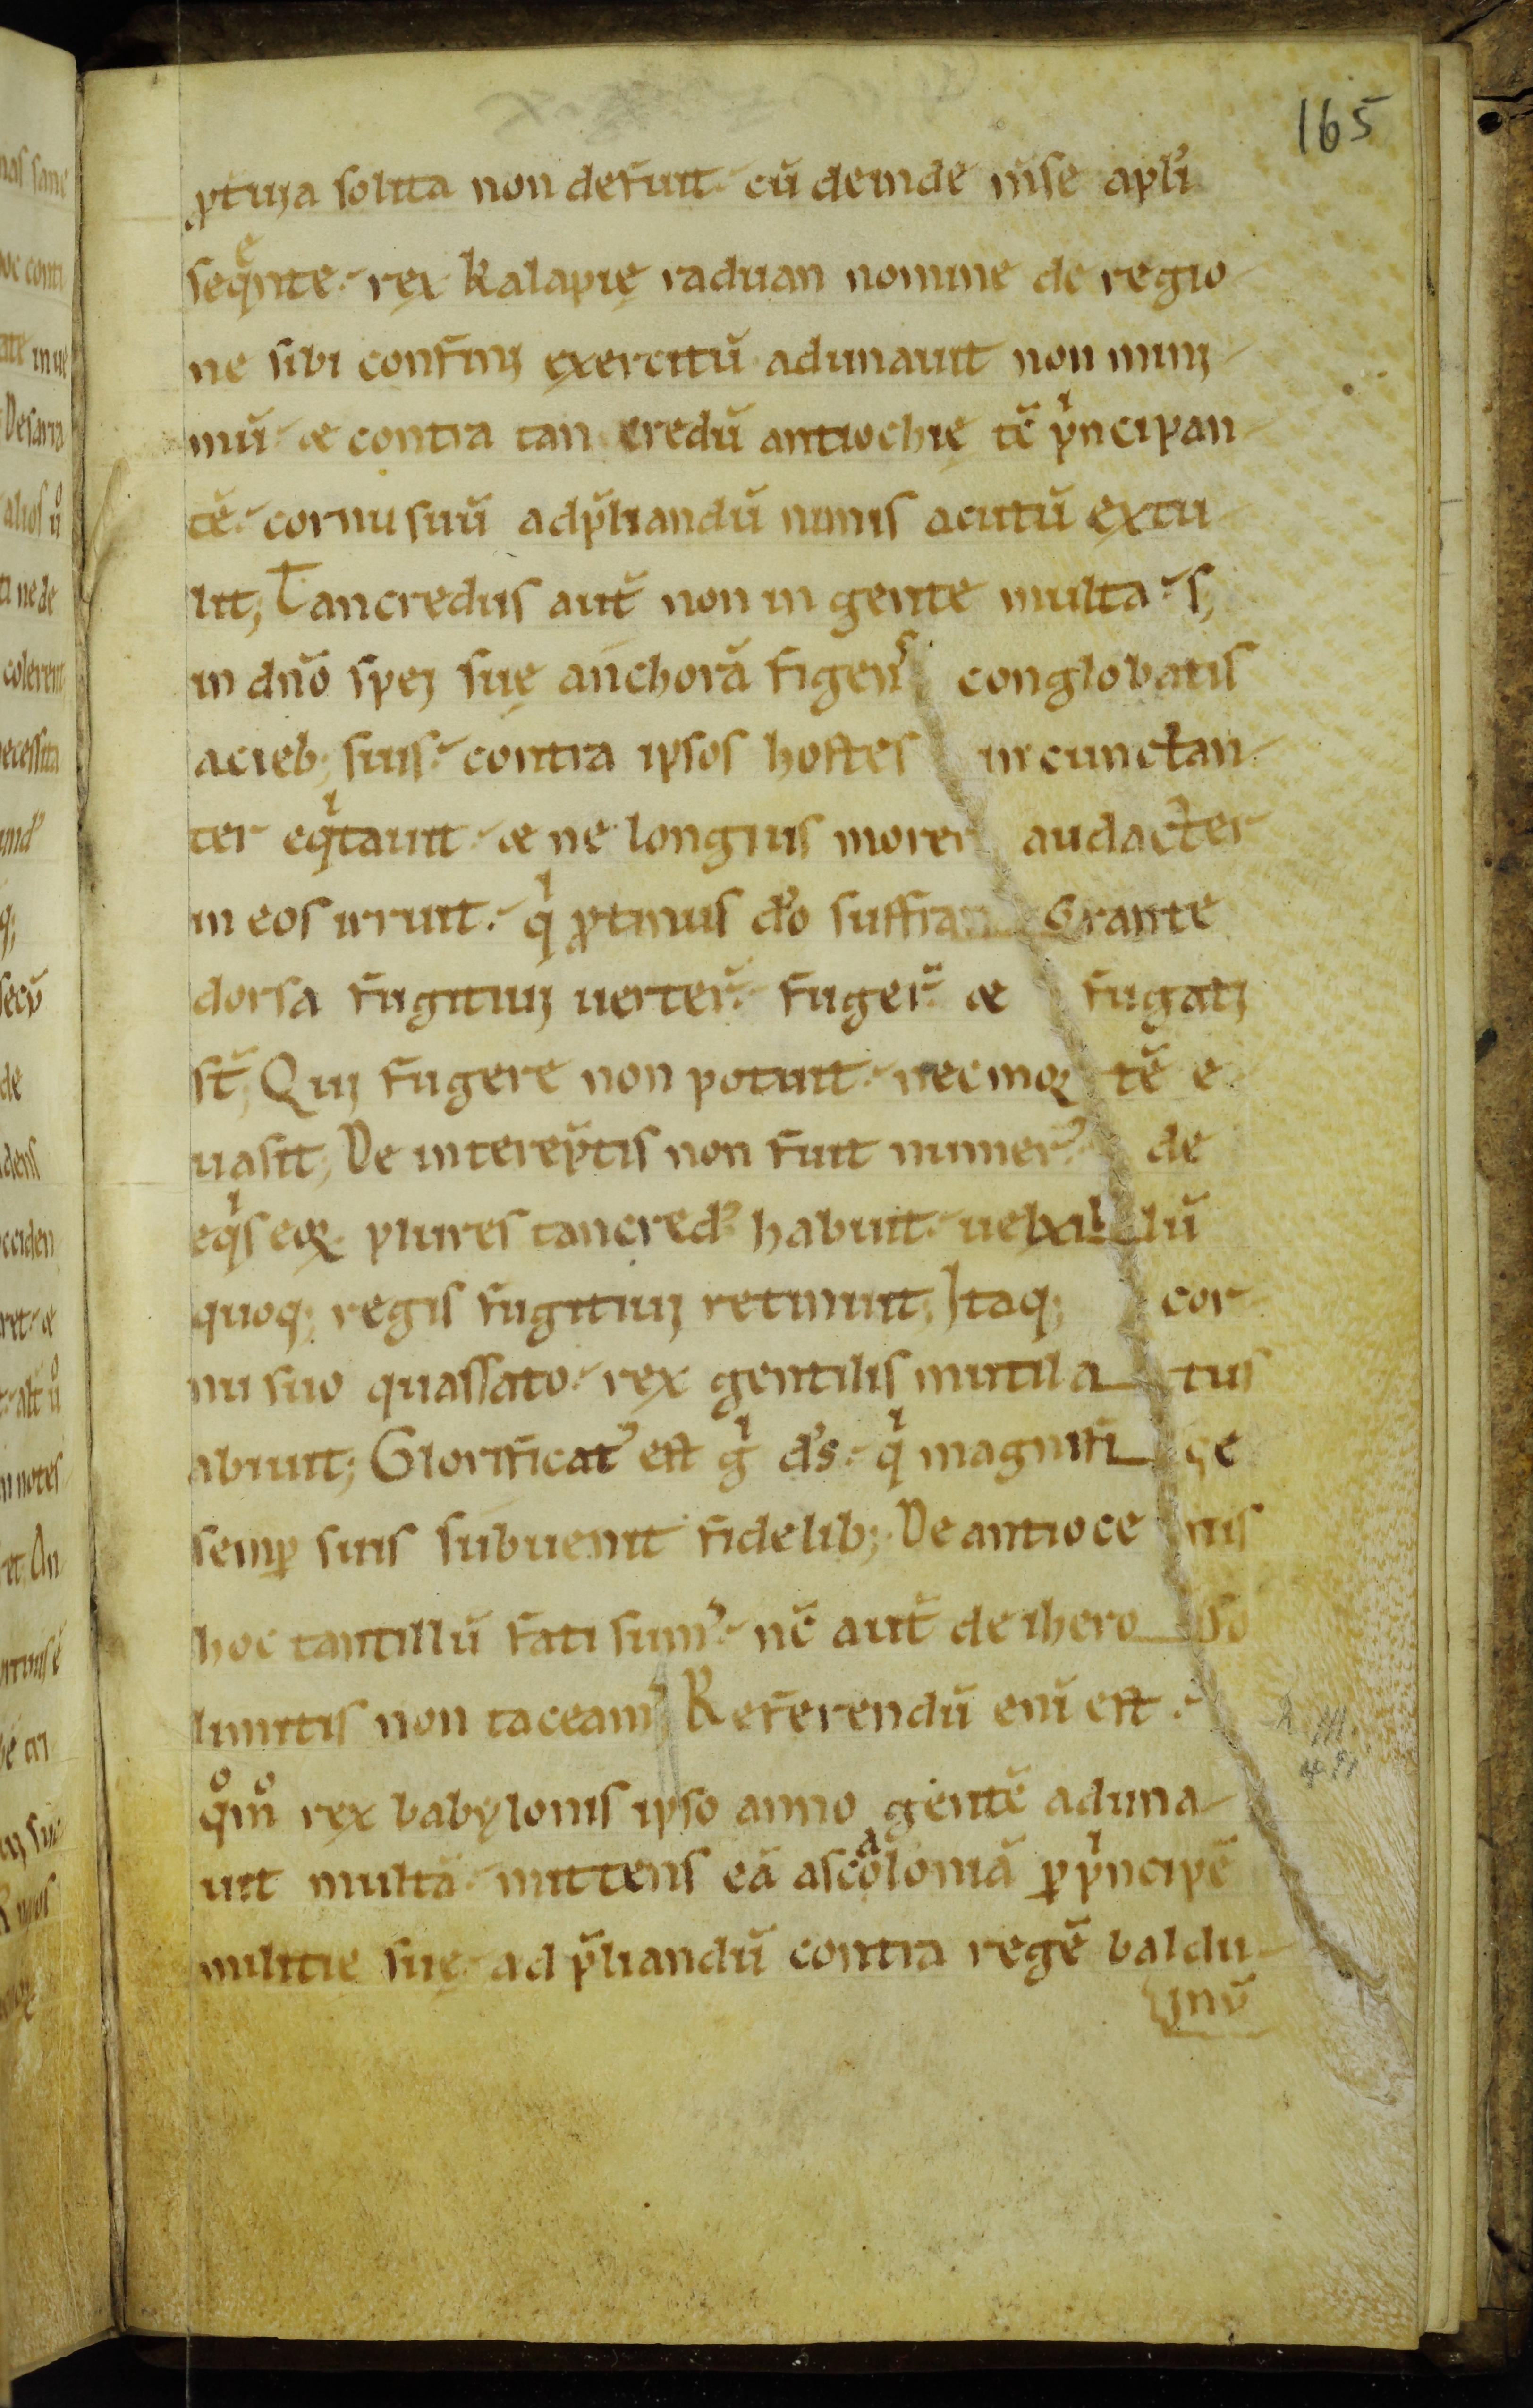 165
ꝓtuna solita non defuit. cū deinde m̄se apl̄i
seq̄nte. rex kalapię raduan nomine de regio
ne sibi confinj exercitū adunauit non minj
mū. & contra tancredū antiochię tē pⁱncipan
tē. cornu suū ad p̄liandū nimis acutū extu
lit; Tancredus aut̄ non in gente multa. s;
in dn̄o spej suę anchorā figens conglobatis
acieb; suis. contra ipsos hostes incunctan
ter eqⁱtauit. & ne longius morer audacter
in eos irruit. qⁱ ꝓtinus do̅ suffragante
dorsa fugituij uerter̄. fuger̄ & fugatj
st̄; Quj fugere non potuit. necmoꝝtē e
uasit; De intereptis non fuit numer᾽. de
eqⁱs eoꝝ plures tancred᾽ habuit. uexillū
quoq; regis fugituij retinuit; Itaq; cor
nu suo quassato. rex gentilis mutilatus
abiuit; Glorificat᾽ est gⁱ ds̄. qⁱ magnifice
semꝑ suis subuenit fidelib; De antiocenis
hoc tantillū fati sum᾽. nc̄ aut̄ de iheroso
limitis non taceam᾽ Referendū eni̅ est.
qºmº rex babylonis ipso anno gentē aduna
uit multā. mittens eā ascaloniā ꝑ pⁱncipē
militie suę. ad p̄liandū contra regē baldu
inū